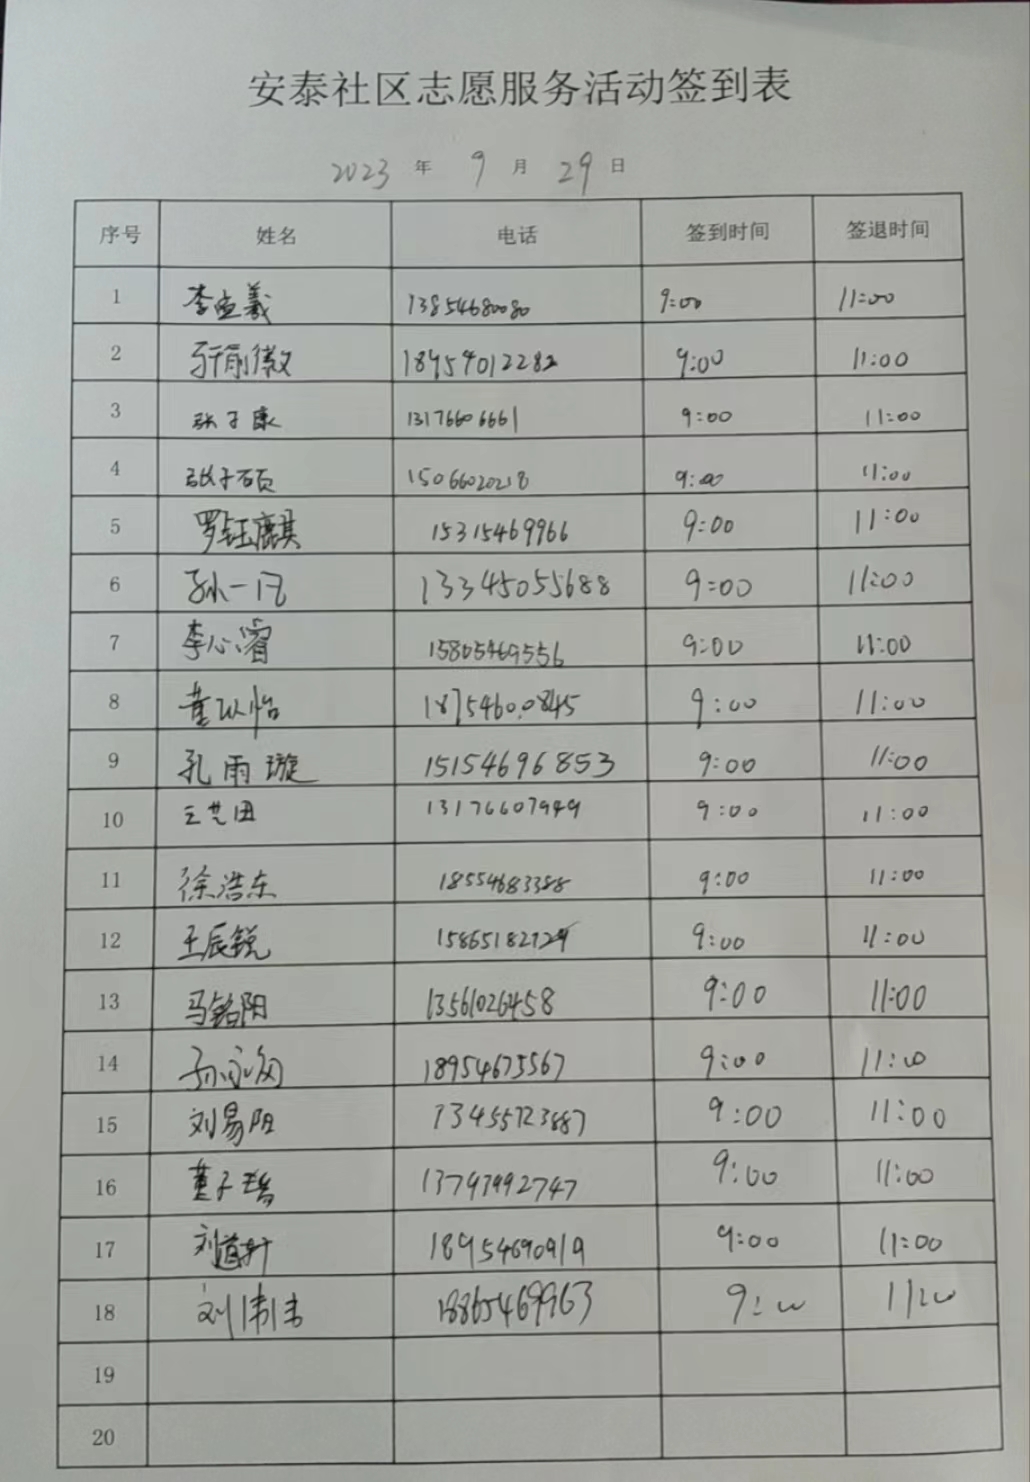 安泰社区志愿服务活动签到表
2023 年 9 月 29 日
序号 姓名 电话 签到时间 签退时间
1 李宜羲 13854680080 9:00 11:00
2 18954012282 9:00 11:00
3 张子康 13176606661 9:00 11:00
4 张子硕 15066020218 9:00 11:00
5 罗钰麒 15315469966 9:00 11:00
6 孙一凡 13345055688 9:00 11:00
7 李心睿 15805469556 9:00 11:00
8 董以怡 18754600845 9:00 11:00
9 孔雨璇 15154696853 9:00 11:00
10 王艺田 13176607949 9:00 11:00
11 徐浩东 18554683388 9:00 11:00
12 王辰锐 15865182729 9:00 11:00
13 马铭阳 13561026458 9:00 11:00
14 18954675567 9:00 11:00
15 刘易阳 13455723887 9:00 11:00
16 董子瑞 13793992747 9:00 11:00
17 刘道轩 18954690919 9:00 11:00
18 刘 18865469963 9:00 11:00
19
20